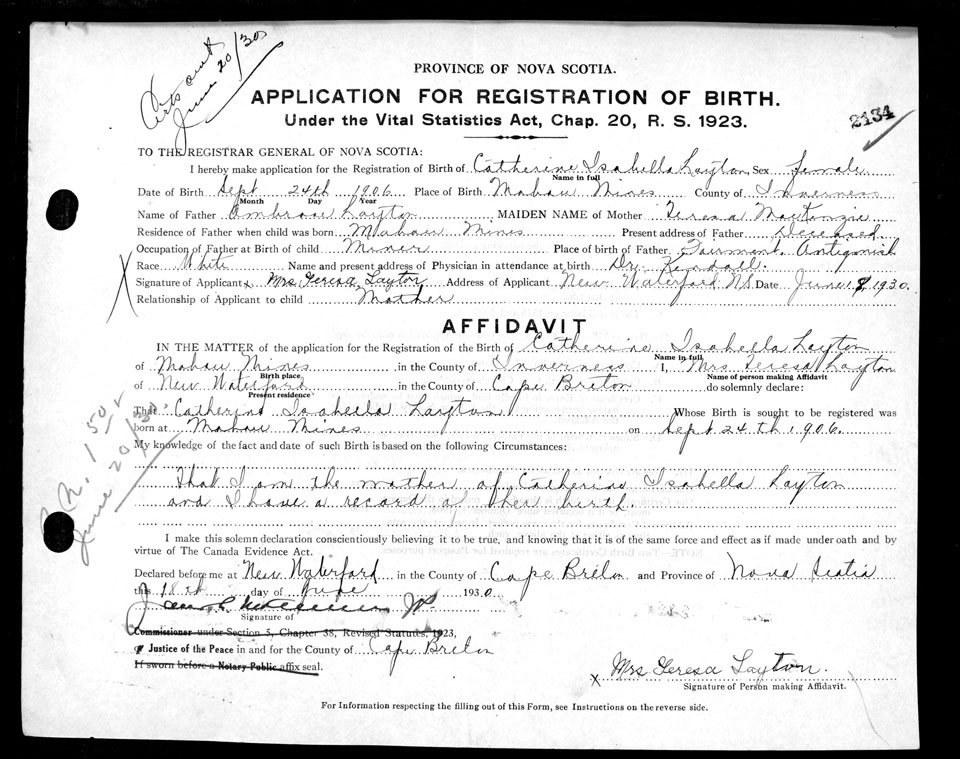 June 20/30
PROVINCE OF NOVA SCOTIA.
APPLICATION FOR REGISTRATION OF BIRTH.
Under the Vital Statistics Act, Chap. 20, R. S. 1923.
2134
TO THE REGISTRAR GENERAL OF NOVA SCOTIA:
I hereby make application for the Registration of Birth of Catherine Isabella Layton Sex female
Name in full
Date of Birth Sept 24th 1906 Place of Birth Mabou Mines County of Inverness
Month Day Year
Name of Father Ambrose Layton MAIDEN NAME of Mother Teresa MacKenzie
Residence of Father when child was born Mabou Mines Present address of Father Deceased
Occupation of Father at Birth of child Miner Place of birth of Father Fairmont, Antigonish
Race White Name and present address of Physician in attendance at birth Dr. Kendall.
Signature of Applicant x Mrs Teresa Layton Address of Applicant New Waterford NS Date June 18 1930
Relationship of Applicant to child Mother
AFFIDAVIT
IN THE MATTER of the application for the Registration of the Birth of Catherine Isabella Layton
Name in full
of Mabou Mines in the County of Inverness I, Mrs Teresa Layton
Birth place Name of person making Affidavit
of New Waterford in the County of Cape Breton do solemnly declare:
Present residence
That Catherine Isabella Layton Whose Birth is sought to be registered was
born at Mabou Mines on Sept 24th 1906.
My knowledge of the fact and date of such Birth is based on the following Circumstances:
That I am the mother of Catherine Isabella Layton
and I have a record of her birth.
150
June 20/30
I make this solemn declaration conscientiously believing it to be true, and knowing that it is of the same force and effect as if made under oath and by
virtue of The Canada Evidence Act.
Declared before me at New Waterford in the County of Cape Breton and Province of Nova Scotia
this 18th day of June 1930
JP
Signature of
Commissioner under Section 5, Chapter 38, Revised Statutes, 1923,
Justice of the Peace in and for the County of Cape Breton
If sworn before a Notary Public affix seal.
x Mrs Teresa Layton.
Signature of Person making Affidavit.
For Information respecting the filling out of this Form, see Instructions on the reverse side.